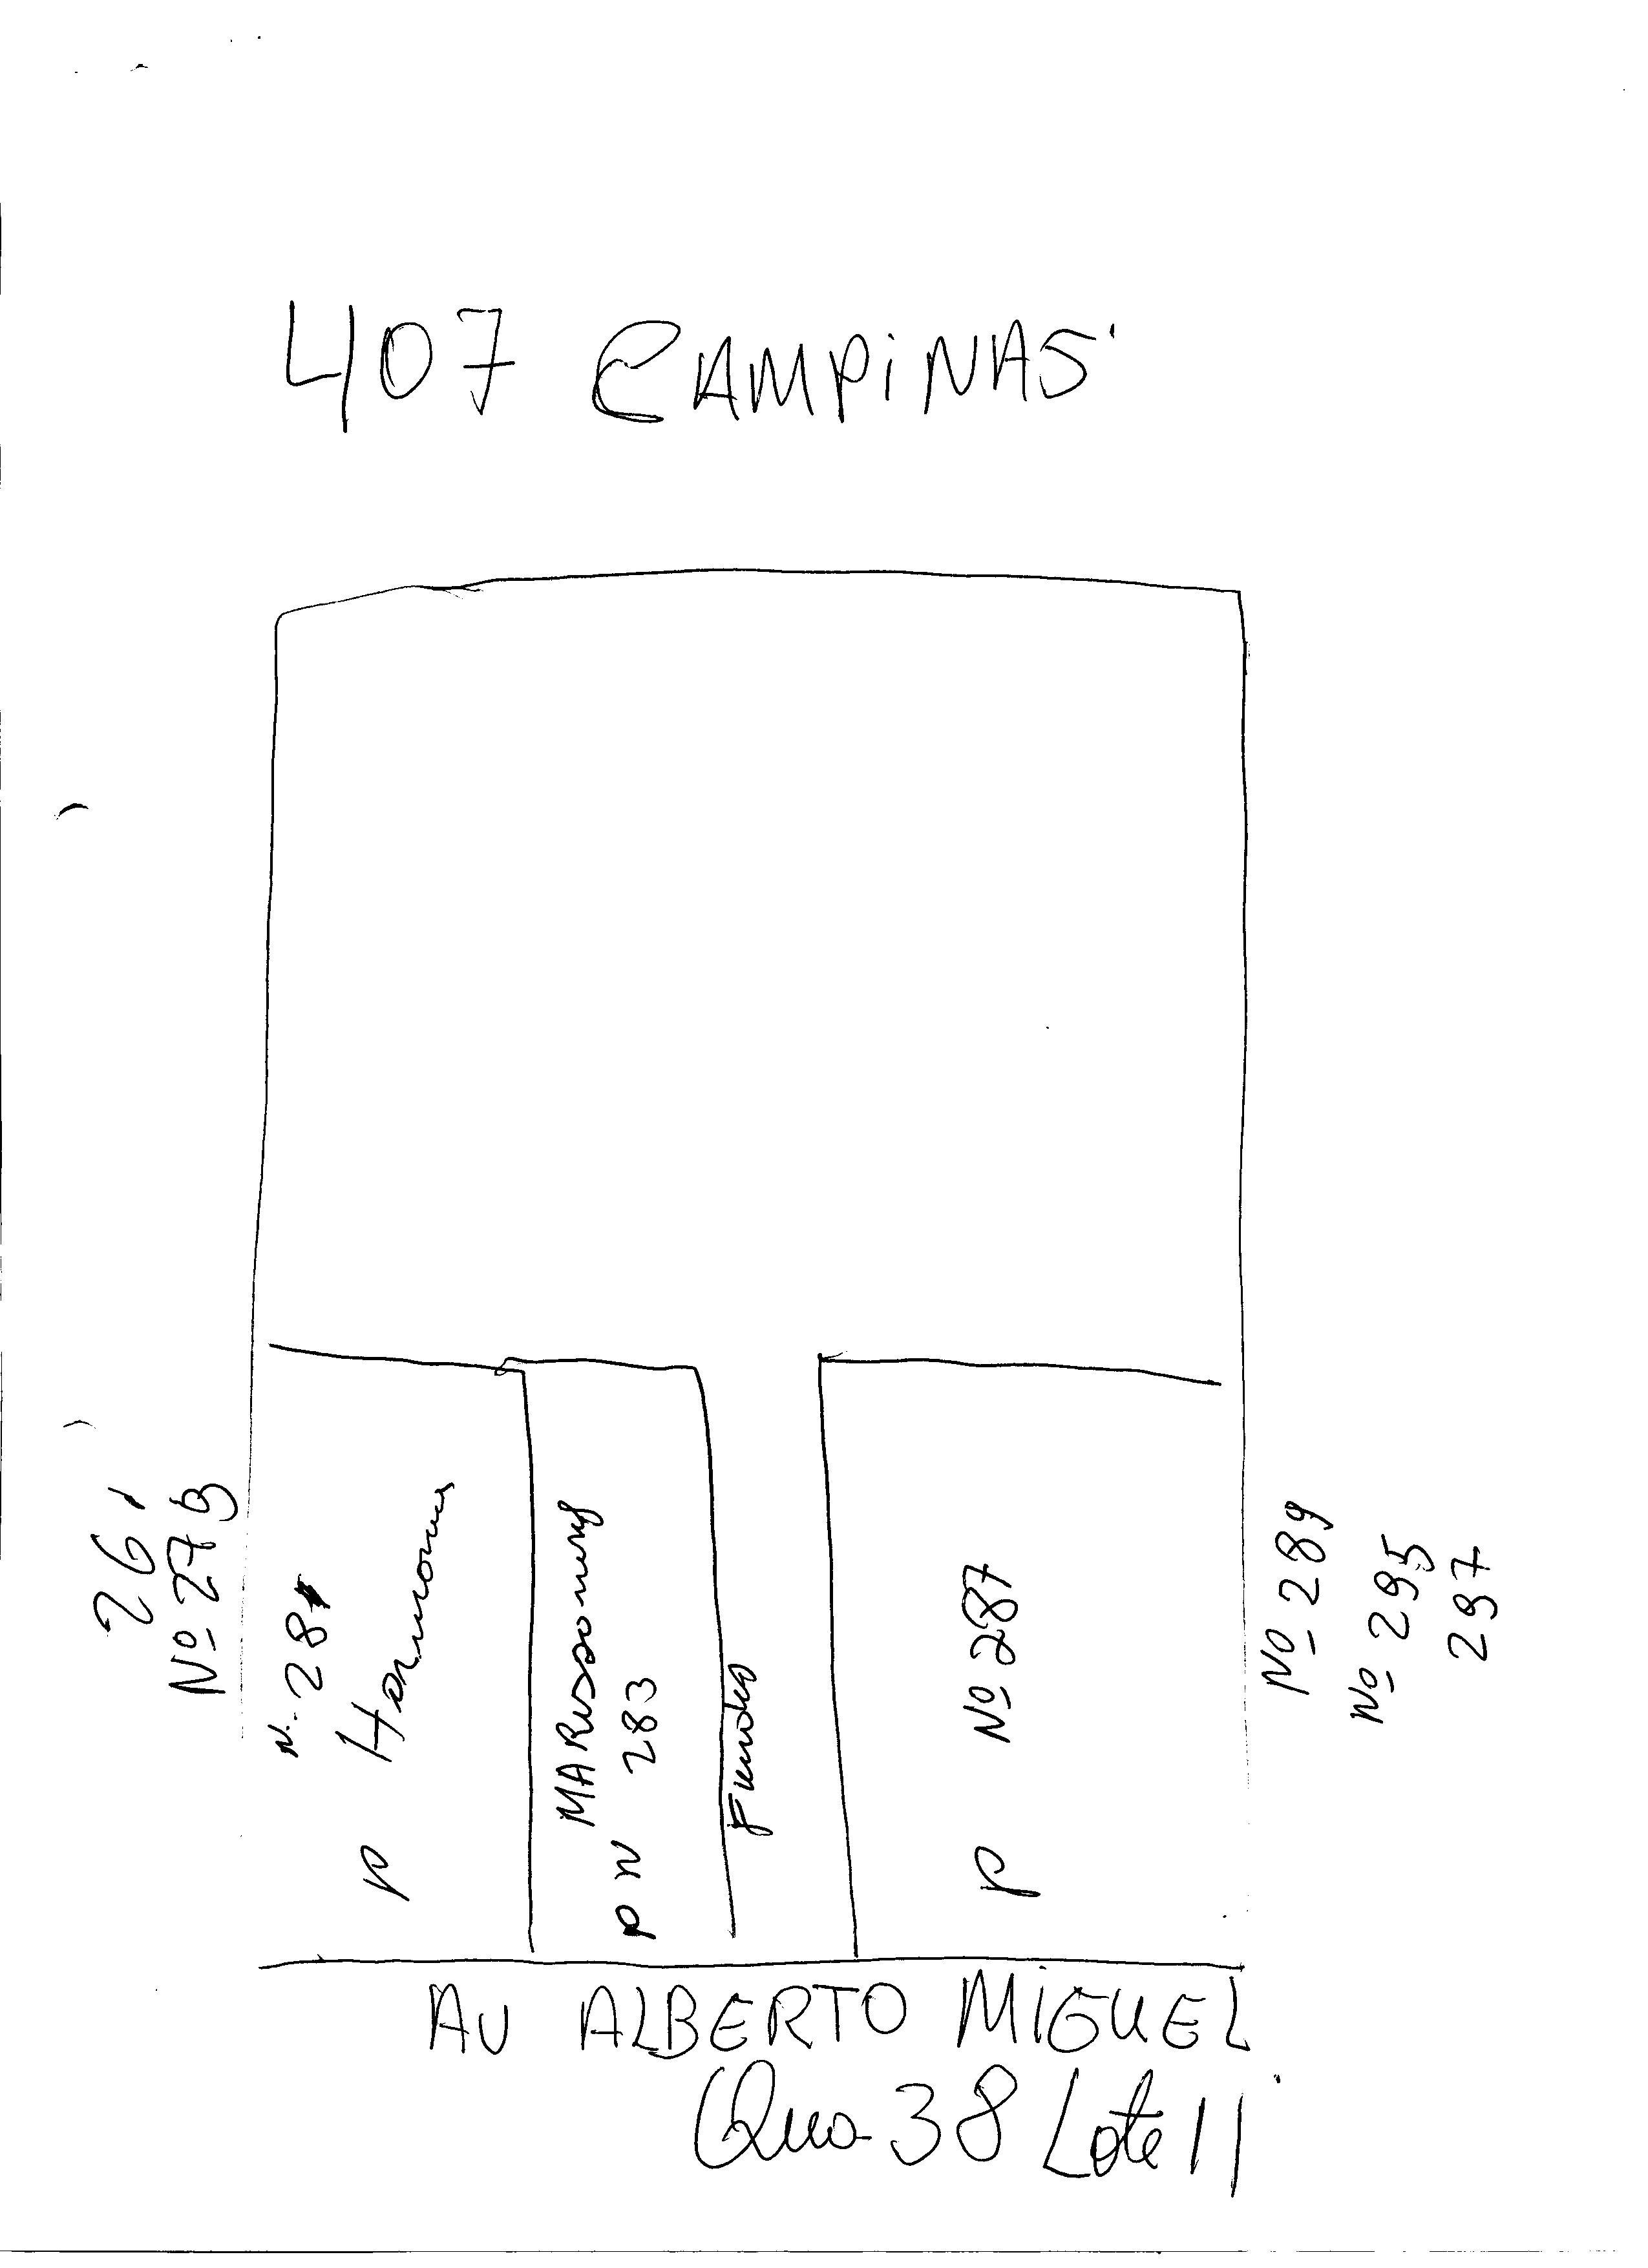 407 CAMPINAS
261
Nº 279
N. 281
P
P N 283
Fundos
P Nº 287
Nº 289
Nº 295
297
AV ALBERTO MIGUEL
Qua 38 Lote 11